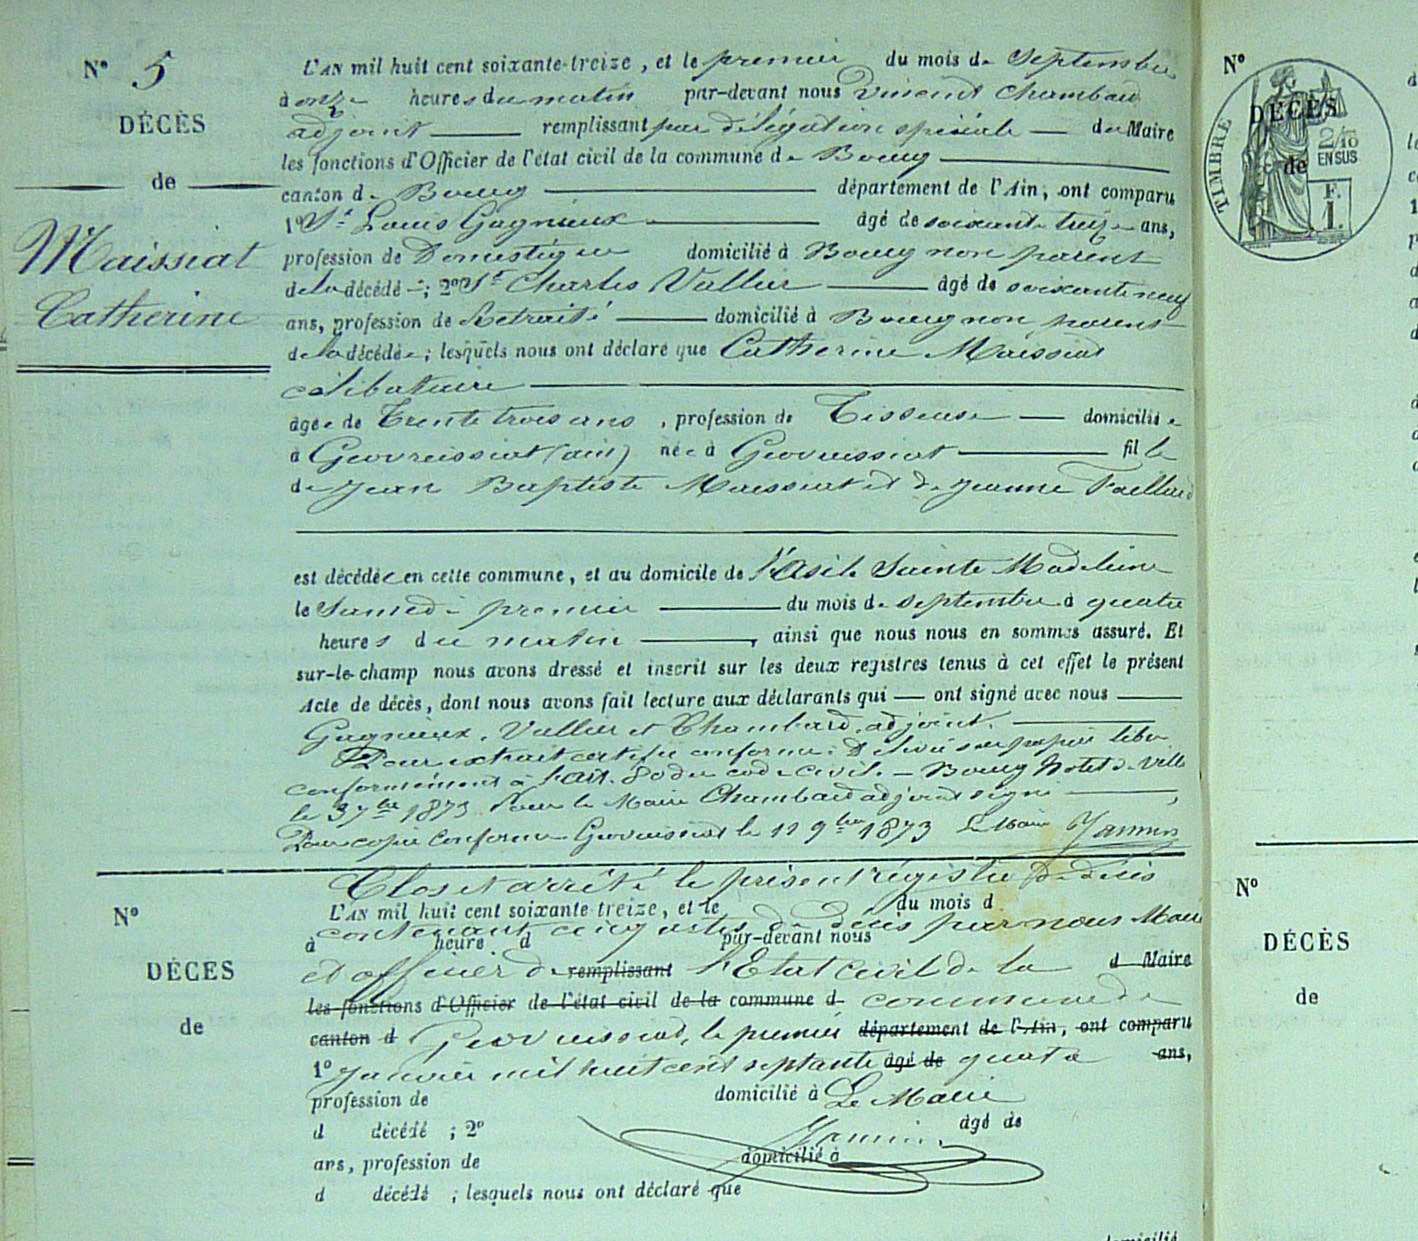 N° 5
DÉCÈS
de
Maissiat
Catherine
L'AN mil huit cent soixante-treize, et le premier du mois de Septembre
à onze heures du matin par-devant nous Vincent Chambard
adjoint remplissant par délégation spéciale du Maire
les fonctions d'Officier de l'état civil de la commune de Bourg
canton de Bourg département de l'Ain, ont comparu
1° Sr Louis Gagnieux âgé de soixante treize ans,
profession de Domestique domicilié à Bourg non parent
de la décédée; 2° Sr Charles Vallier âgé de soixante neuf
ans, profession de Retraité domicilié à Bourg non parent
de la décédée; lesquels nous ont déclaré que Catherine Maissiat
célibataire
âgée de Trente trois ans, profession de Tisseuse domiciliée
à Geovreissiat (ain) née à Geovreissiat fille
de Jean Baptiste Maissiat et de Jeanne
est décédée en cette commune, et au domicile de l'Asile Sainte Madeleine
le Samedi premier du mois de septembre à quatre
heures du matin, ainsi que nous nous en sommes assuré. Et
sur-le-champ nous avons dressé et inscrit sur les deux registres tenus à cet effet le présent
Acte de décès, dont nous avons fait lecture aux déclarants qui — ont signé avec nous
Gagnieux, Vallier et Chambard, adjoint.
Pour extrait certifié conforme: Délivré sur papier libre
conformément à l'art. 80 du code civil. — Bourg Hotel de Ville
le 3 7bre 1873. Pour le Maire Chambard adjoint signé
Pour copie conforme Geovreissiat le 11 9bre 1873 Le Maire Jannin
Clos et arrêté le présent régistre de décès
N°
L'AN mil huit cent soixante-treize, et le du mois d
contenant cinq actes de décès par nous Maire
à heure d par-devant nous
DÉCÈS
et officier de remplissant l'Etat civil de la d Maire
les fonctions d'Officier de l'état civil de la commune d commune de
de
canton d Geovreissiat, le premier département de l'Ain, ont comparu
1° Janvier mil huit cent septante âgé de quatre ans,
profession de domicilié à Le Maire
d décédé ; 2° Jannin âgé de
ans, profession de domicilié à
d décédé ; lesquels nous ont déclaré que
domicilié
N°
DÉCÈS
de
TIMBRE
2/10
EN SUS
F.
1.
N°
DÉCÈS
de